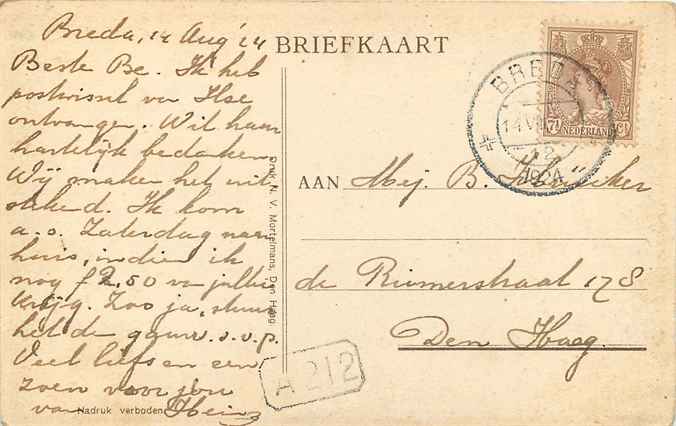 Breda, 14 Aug '24
Beste Be. Ik heb
postwissel van Ilse
ontvangen. Wil haar
hartelijk bedanken.
Wij maken het uit
stekend. Ik kom
a.s. Zaterdag naar
huis, indien ik
nog f 2,50 van jullie
krijg. Zoo ja, stuur
het de gauw. s.v.p.
Veel liefs en een
zoen voor jou
van Heinz
BRIEFKAART
AAN Mej. B.
de Riemerstraat 178
Den Haag
Druk N. V. Mortelmans, Den Haag
Nadruk verboden
A 212
BREDA
14 VIII
12
1924
7½ Ct
NEDERLAND